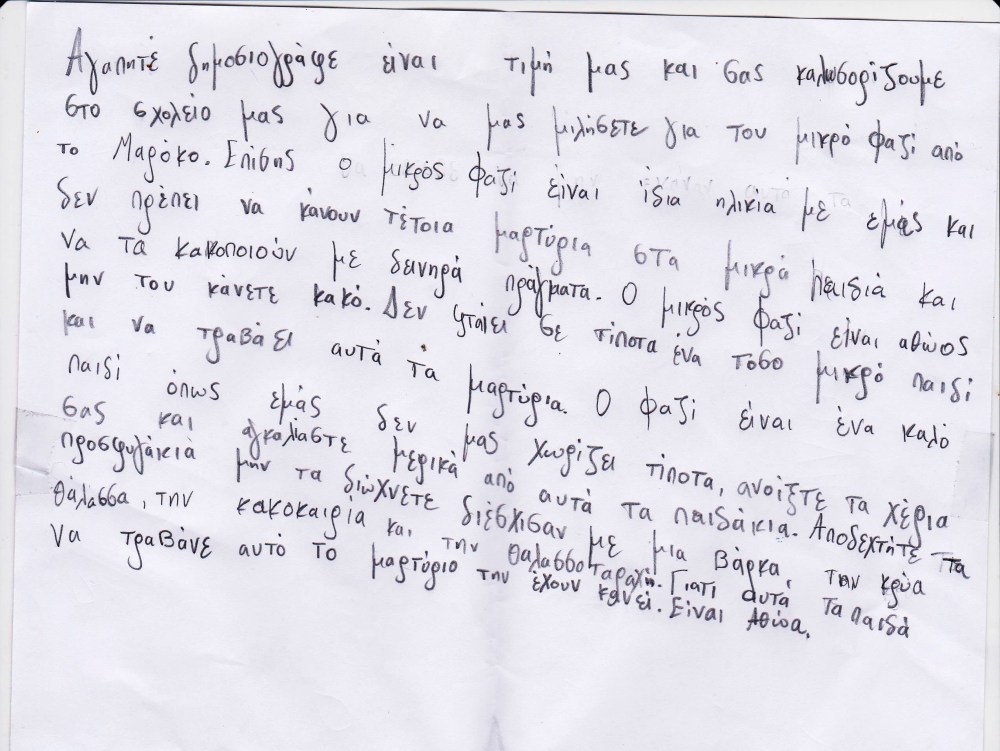 Αγαπητέ δημοσιογράφε είναι τιμή μας και σας καλωσορίζουμε
στο σχολείο μας για να μας μιλήσετε για τον μικρό φαζί από
το Μαρόκο. Επίσης ο μικρός φαζί είναι ίδια ηλικία με εμάς και
δεν πρέπει να κάνουν τέτοια μαρτύρια στα μικρά παιδιά και
να τα κακοποιούν με δεινηρά πράγματα. Ο μικρός φαζί είναι αθώος
μην του κάνετε κακό. Δεν φταίει σε τίποτα ένα τόσο μικρό παιδί
και να τραβάει αυτά τα μαρτύρια. Ο φαζί είναι ένα καλό
παιδί όπως εμάς δεν μας χωρίζει τίποτα, ανοίξτε τα χέρια
σας και αγκαλίαστε μερικά από αυτά τα παιδάκια. Αποδεχτήτε τα
προσφυγάκια μην τα διώχνετε διέσχισαν με μια βάρκα, την κρύα
θάλασσα, την κακοκαιρία και την θαλασσοταραχή. Γιατί αυτά τα παιδά
να τραβάνε αυτό το μαρτύριο την έχουν κάνει. Είναι Αθώα.